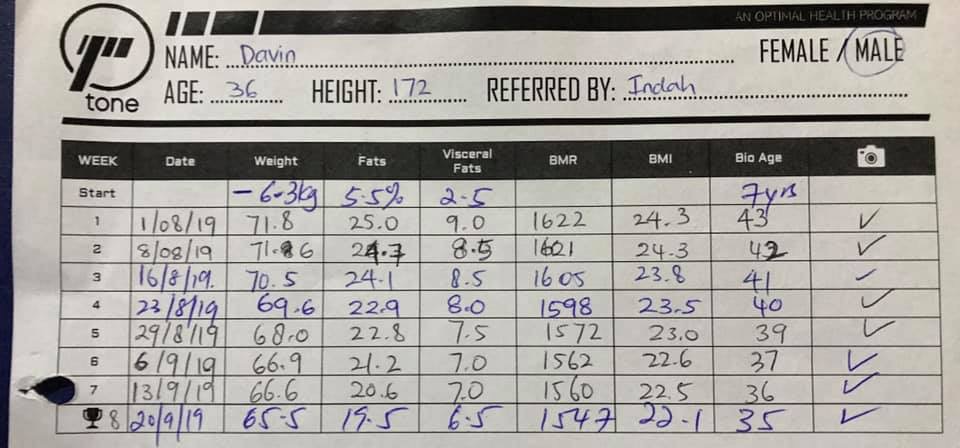 AN OPTIMAL HEALTH PROGRAM
NAME: Davin FEMALE / MALE
AGE: 36 HEIGHT: 172 REFERRED BY: Indah
tone
WEEK Date Weight Fats Visceral Fats BMR BMI Bio Age
Start -6.3kg 5.5% 2.5 7yrs
1 1/08/19 71.8 25.0 9.0 1622 24.3 43 ✓
2 8/08/19 71.6 24.7 8.5 1621 24.3 42 ✓
3 16/8/19. 70.5 24.1 8.5 1605 23.8 41 ✓
4 23/8/19 69.6 22.9 8.0 1598 23.5 40 ✓
5 29/8/19 68.0 22.8 7.5 1572 23.0 39 ✓
6 6/9/19 66.9 21.2 7.0 1562 22.6 37 ✓
7 13/9/19 66.6 20.6 7.0 1560 22.5 36 ✓
8 20/9/19 65.5 19.5 6.5 1547 22.1 35 ✓